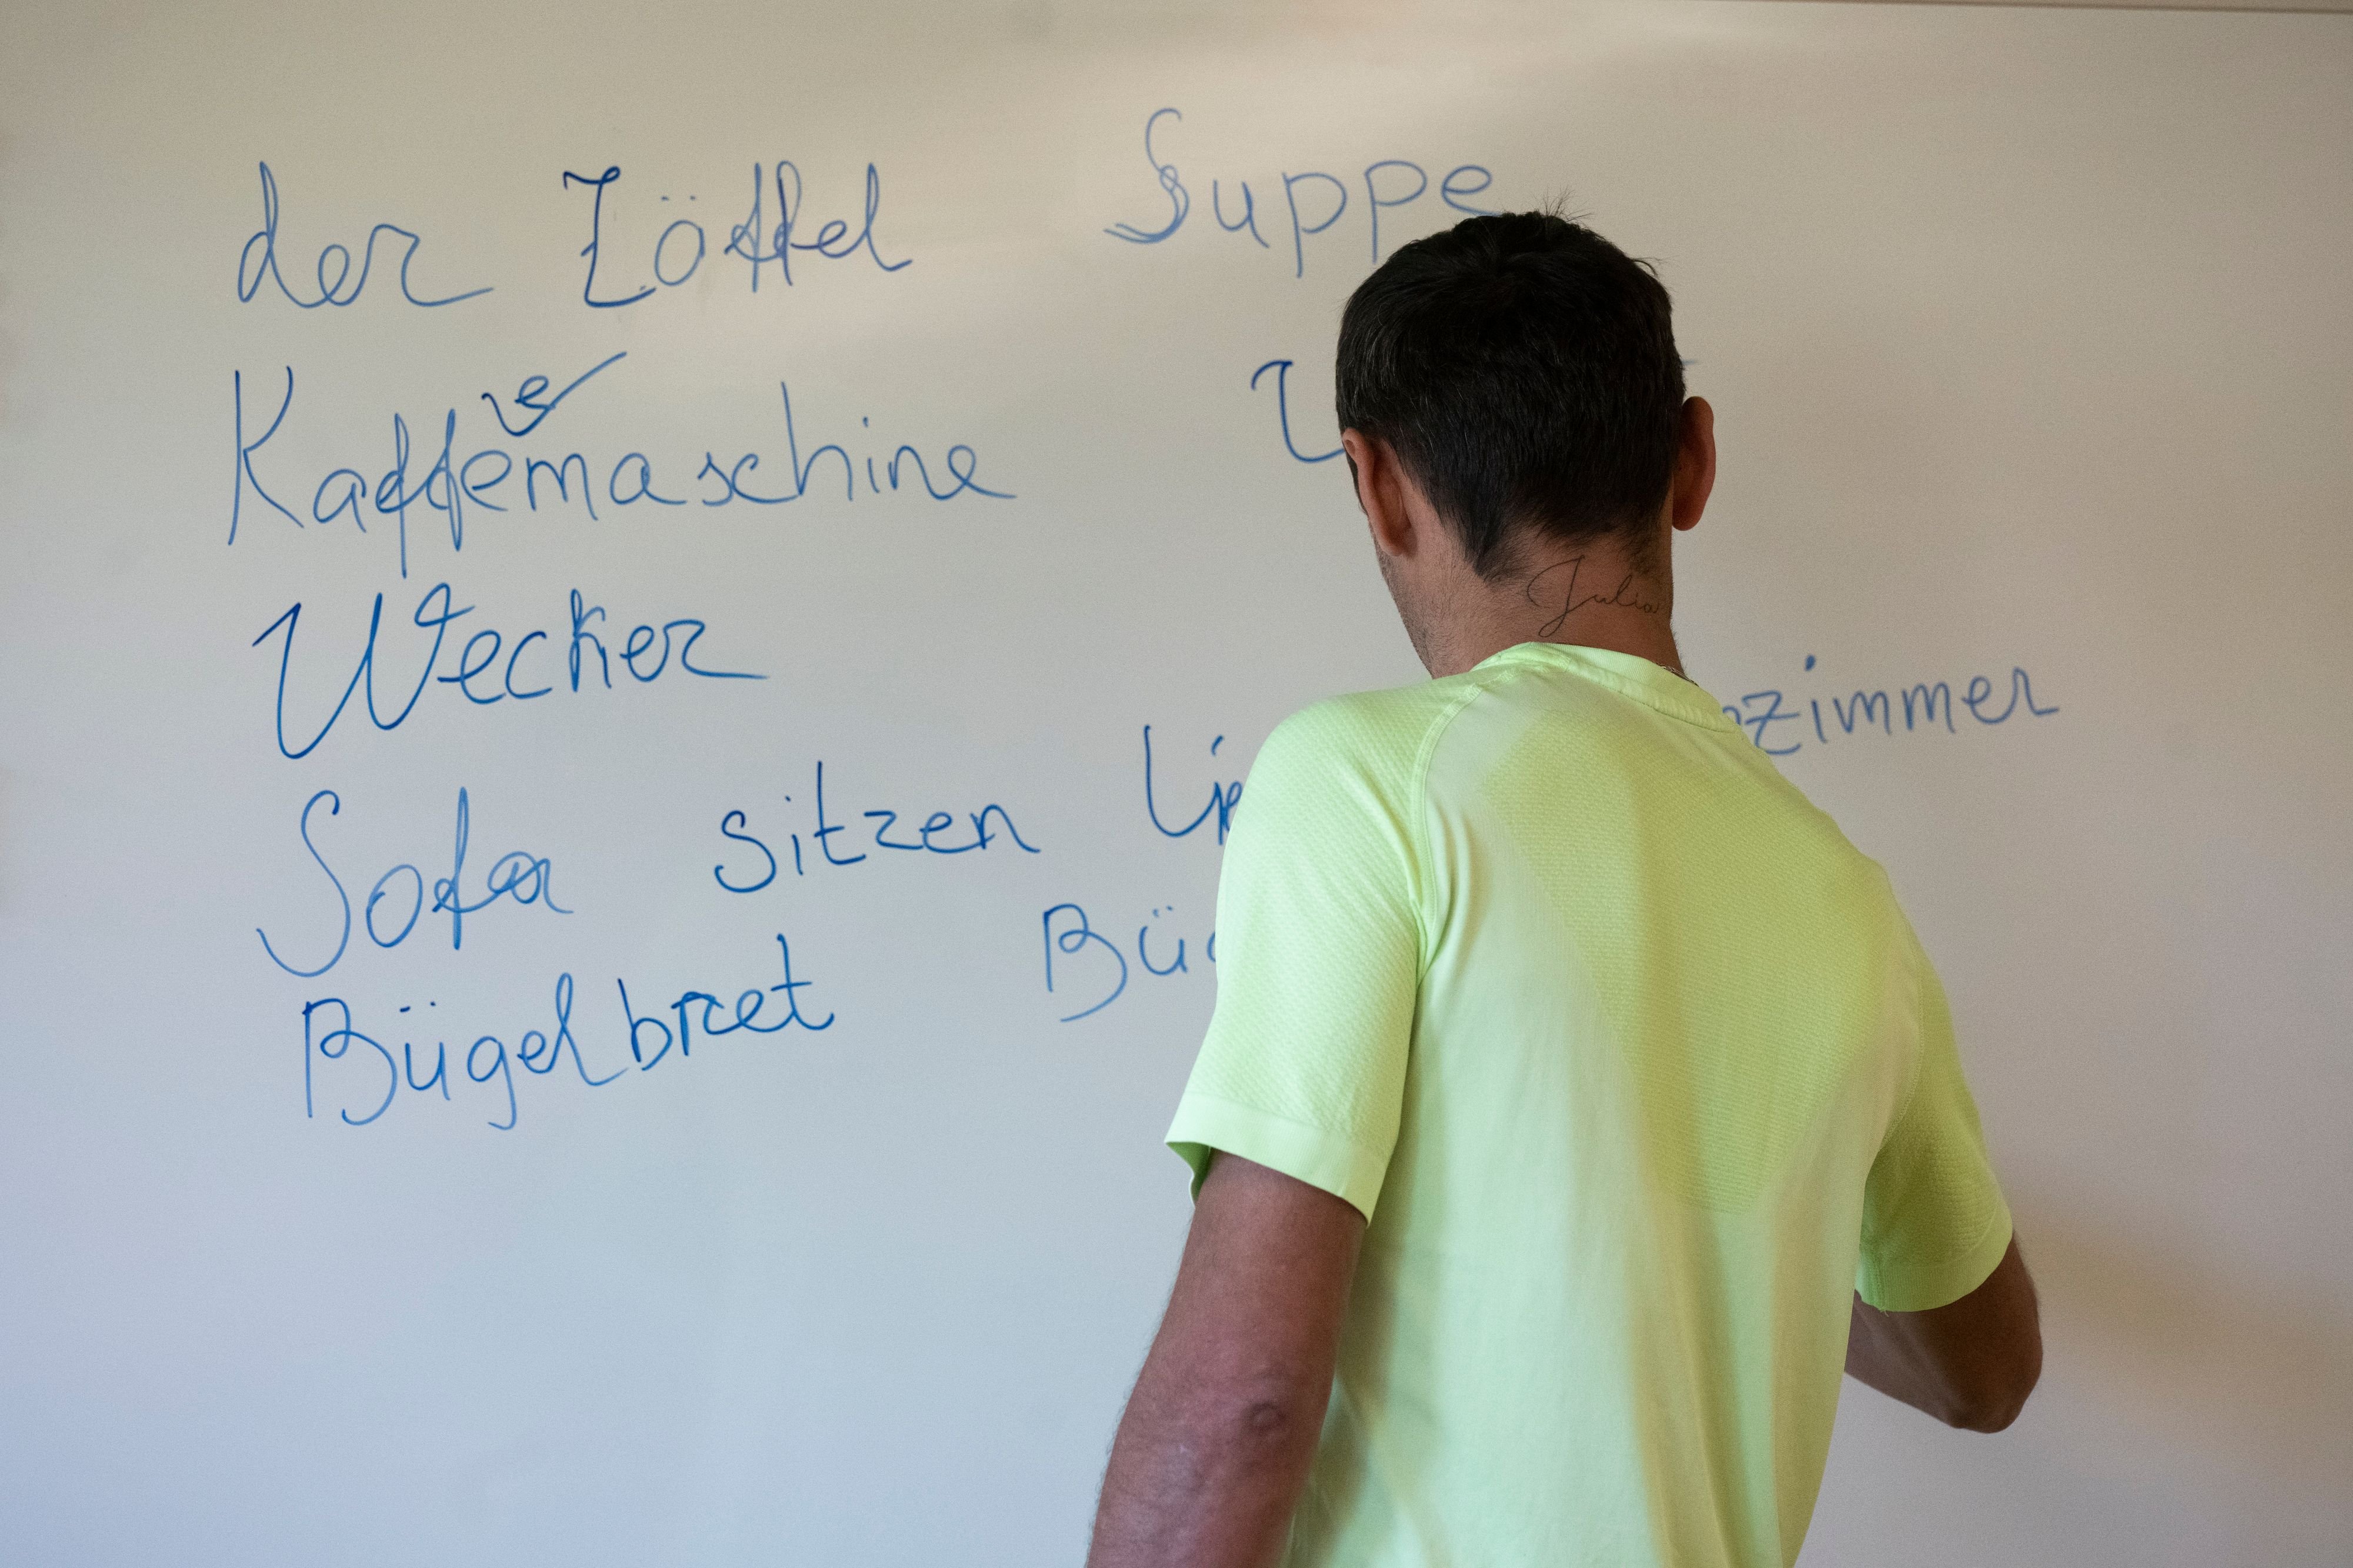 der Löffel Suppe
Kaffeemaschine
Wecker
zimmer
Sofa sitzen
Bügelbret
Julia